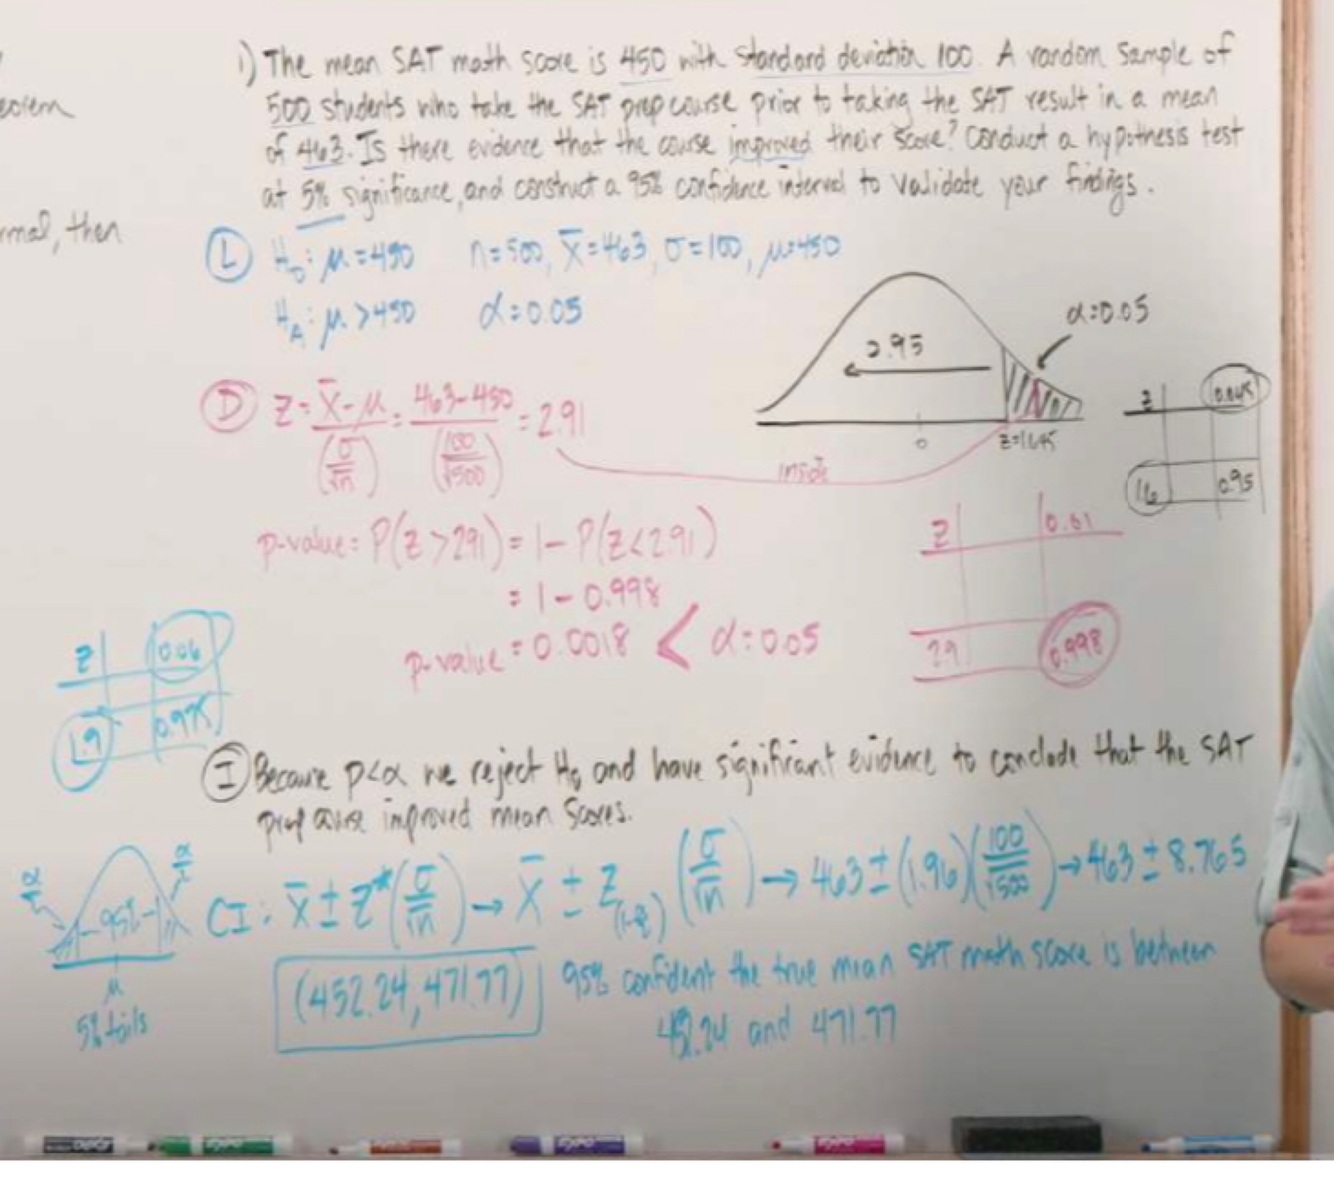 eorem
rmal, then
1) The mean SAT math score is 450 with standard deviation 100. A random sample of
500 students who take the SAT prep course prior to taking the SAT result in a mean
of 463. Is there evidence that the course improved their score? Conduct a hypothesis test
at 5% significance, and construct a 95% confidence interval to validate your findings.
L H₀: μ=450 n=500, x̄=463, σ=100, μ=450
H_A: μ>450 α=0.05
α=0.05
0.95
0 z=1.645
z 0.045
1.6 0.95
D Z = (x̄-μ)/(σ/√n) = (463-450)/(100/√500) = 2.91
inside
p-value = P(Z>2.91) = 1-P(Z<2.91)
= 1-0.998
p-value = 0.0018 < α=0.05
z 0.01
2.9 0.998
z 0.06
1.9 0.975
I Because p<α we reject H₀ and have significant evidence to conclude that the SAT
prep course improved mean scores.
α/2 α/2
-95%-
μ
5% tails
CI: x̄ ± z*(σ/√n) → x̄ ± z(1-α/2) (σ/√n) → 463 ± (1.96)(100/√500) → 463 ± 8.765
(452.24, 471.77) 95% confident the true mean SAT math score is between
and 471.77
expo
expo
expo
expo